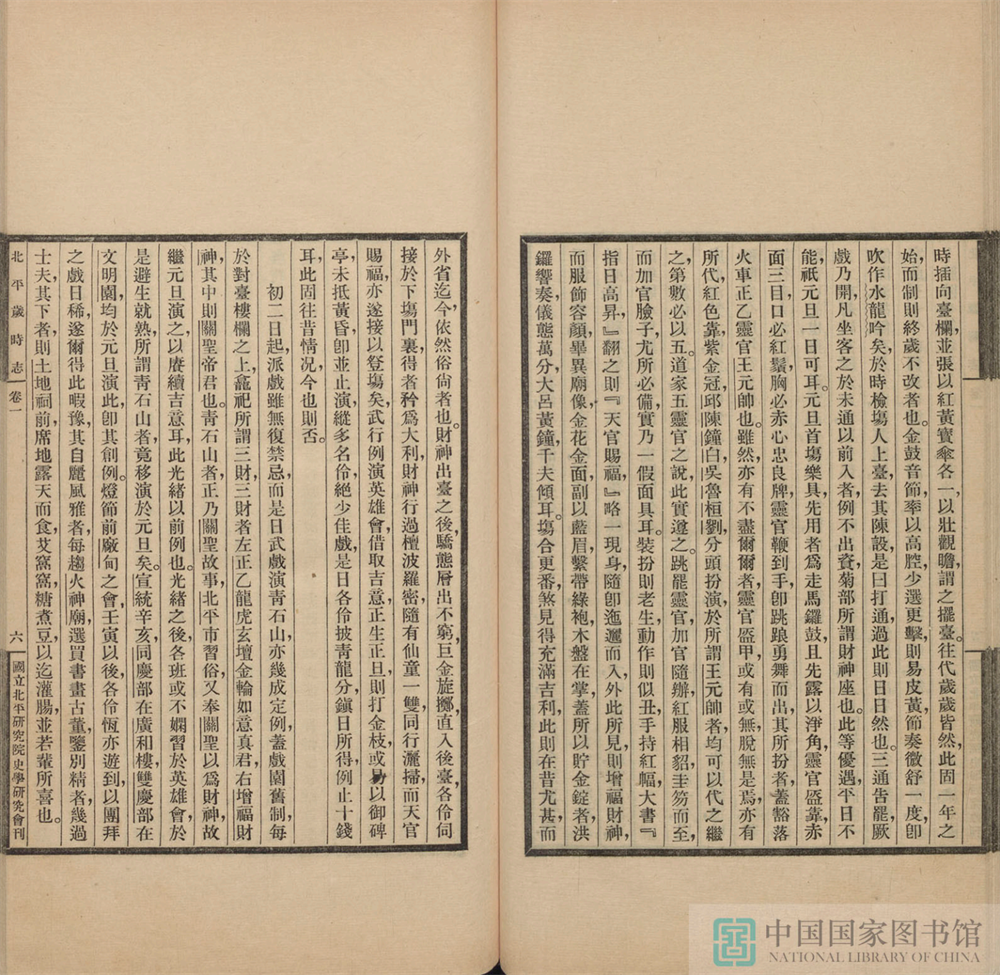 時擂向臺欄並張以紅黃寶傘各一以壯觀瞻謂之擺臺。往代歲歲皆然,此固一年之
始,而制則終歲不改者也。金鼓音節,率以高腔,少選更擊,則易皮黃,節奏微舒,一度卽
吹,作水龍吟矣。於時檢塲人上臺,去其陳設,是曰打通,過此則日日然也。三通告罷,厥
戲乃開,凡坐客之於未通以前入者,例不出資,菊部所謂財神座也。此等優遇,平日不
能,祇元旦一日可耳。元旦首塲,樂具先用者爲走馬鑼鼓,且先露以淨角靈官,盔靠赤
面三目,口必紅鬚,胸必赤心忠良牌,靈官鞭到手,卽跳踉勇舞而出,其所扮者,蓋豁落
火車正乙靈官王元帥也。雖然,亦有不盡爾爾者,靈官盔甲,或有或無,脫無是焉,亦有
所代,紅色靠,紫金冠,邱陳鐘白吳魯桓劉,分頭扮演,於所謂王元帥者,均可以代之,繼
之,第數必以五,道家五靈官之說,此實遵之。跳罷靈官,加官隨辦,紅服相貂,圭笏而至,
而加官臉子,尤所必備,實乃一假面具耳。裝扮則老生,動作則似丑,手持紅幅,大書『
指日高昇,』翻之則『天官賜福,』略一現身,隨卽迤邐而入,外此所見,則增福財神,
而服飾容顏,畢異廟像,金花金面,副以藍眉,繫帶綠袍,木盤在掌,蓋所以貯金錠者,洪
鑼響奏,儀態萬分,大呂黃鐘,千夫傾耳。塲合更番,煞見得充滿吉利,此則在昔尤甚,而
外省迄今,依然俗尙者也。財神出臺之後,驕態層出不窮,巨金旋擲,直入後臺,各伶伺
接於下塲門裏,得者矜爲大利,財神行過,檀波羅密,隨有仙童一雙,同行灑掃,而天官
賜福,亦遂接以登塲矣。武行例演英雄會,借取吉意,正生正旦,則打金枝,或易以御碑
亭,未抵黃昏,卽並止演,縱多名伶,絕少佳戲,是日各伶披靑龍分,鎭日所得,例止十錢
耳,此固往昔情况,今也則否。
初二日起,派戲雖無復禁忌,而是日武戲演靑石山,亦幾成定例,蓋戲園舊制,每
於對臺樓欄之上,龕祀所謂三財,三財者,左正乙龍虎玄壇金輪如意眞君,右增福財
神,其中則關聖帝君也。靑石山者,正乃關聖故事,北平市習俗,又奉關聖以爲財神,故
繼元旦演之,以賡續吉意耳,此光緒以前例也。光緒之後,各班或不嫻習於英雄會,於
是避生就熟,所謂靑石山者,竟移演於元旦矣。宣統辛亥,同慶部在廣和樓,雙慶部在
文明園,均於元旦演此,卽其創例。燈節前廠甸之會,壬寅以後,各伶恆亦遊到,以團拜
之戲日稀,遂爾得此暇豫,其自麗風雅者,每趨火神廟,選買書畫古董,鑒別精者,幾過
士夫,其下者則土地祠前,席地露天而食艾窩窩,糖煮豆,以迄灌腸,並若輩所喜也。
北平歲時志 卷一 六 國立北平研究院史學研究會刊
中国国家图书馆
NATIONAL LIBRARY OF CHINA